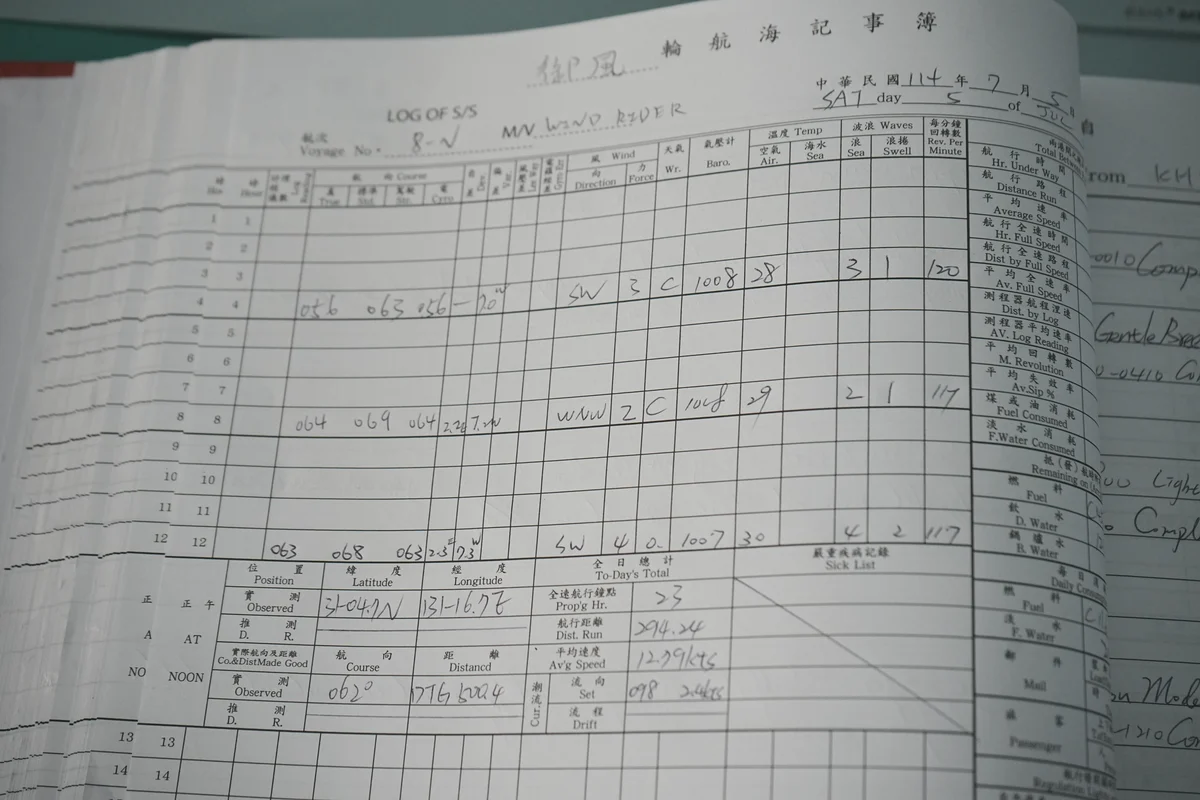 御風 輪 航 海 記 事 簿
中華民國 114 年 7 月 5 日
SAT day 5 of JUL
LOG OF S/S
M/V. WIND RIDER
航次
Voyage No. 8-N
自
from KH
時 時 航 向 Course 自差 偏差 風 Wind 天氣 氣壓計 溫度 Temp 波浪 Waves 每分鐘回轉數
Hour 真 標準 駕駛 電 Dev. Var. 向 力 Wr. Baro. 空氣 海水 浪 浪捲 Rev. Per
True Std. Str. Gyro Direction Force Air. Sea Sea Swell Minute
航行時間
Hr. Under Way
航行路程
Distance Run
平均速率
Average Speed
航行全速時間
Hr. Full Speed
航行全速路程
Dist by Full Speed
平均全速率
Av. Full Speed
測程器航程浬速
Dist. by Log
測程器平均速率
AV. Log Reading
平均回轉數
M. Revolution
平均失效率
Av.Sip %
煤或油消耗
Fuel Consumed
淡水消耗
F.Water Consumed
燃料
Fuel
飲水
D. Water
鍋爐水
B. Water
燃料
Fuel
淡水
F. Water
郵件
Mail
旅客
Passenger
1 1
2 2
3 3
4 4 056 063 056 - 7.0W SW 3 C 1008 28 3 1 120
5 5
6 6
7 7
8 8 064 069 064 2.2E 7.2W WNW 2 C 1008 29 2 1 117
9 9
10 10
11 11
12 12 063 068 063 2.3E 7.3W SW 4 O. 1007 30 4 2 117
位置 緯度 經度 全日總計 嚴重疾病記錄
Position Latitude Longitude To-Day's Total Sick List
正 正午
A AT
NO NOON
實測
Observed 31-04.7N 131-16.7E
全速航行鐘點
Prop'g Hr. 23
推測
D. R.
航行距離
Dist. Run 294.24
實際航向及距離 航向 距離
Co.&DistMade Good Course Distancd
平均速度
Av'g Speed 12.79kts
實測
Observed 062° DTG 500.4
潮流 Cur.
流向
Set 098 2.4kts
推測
D. R.
流程
Drift
13 13
14 14
0010 Comp
Gentle Bree
Light
Compl
Mode
-1210 Co